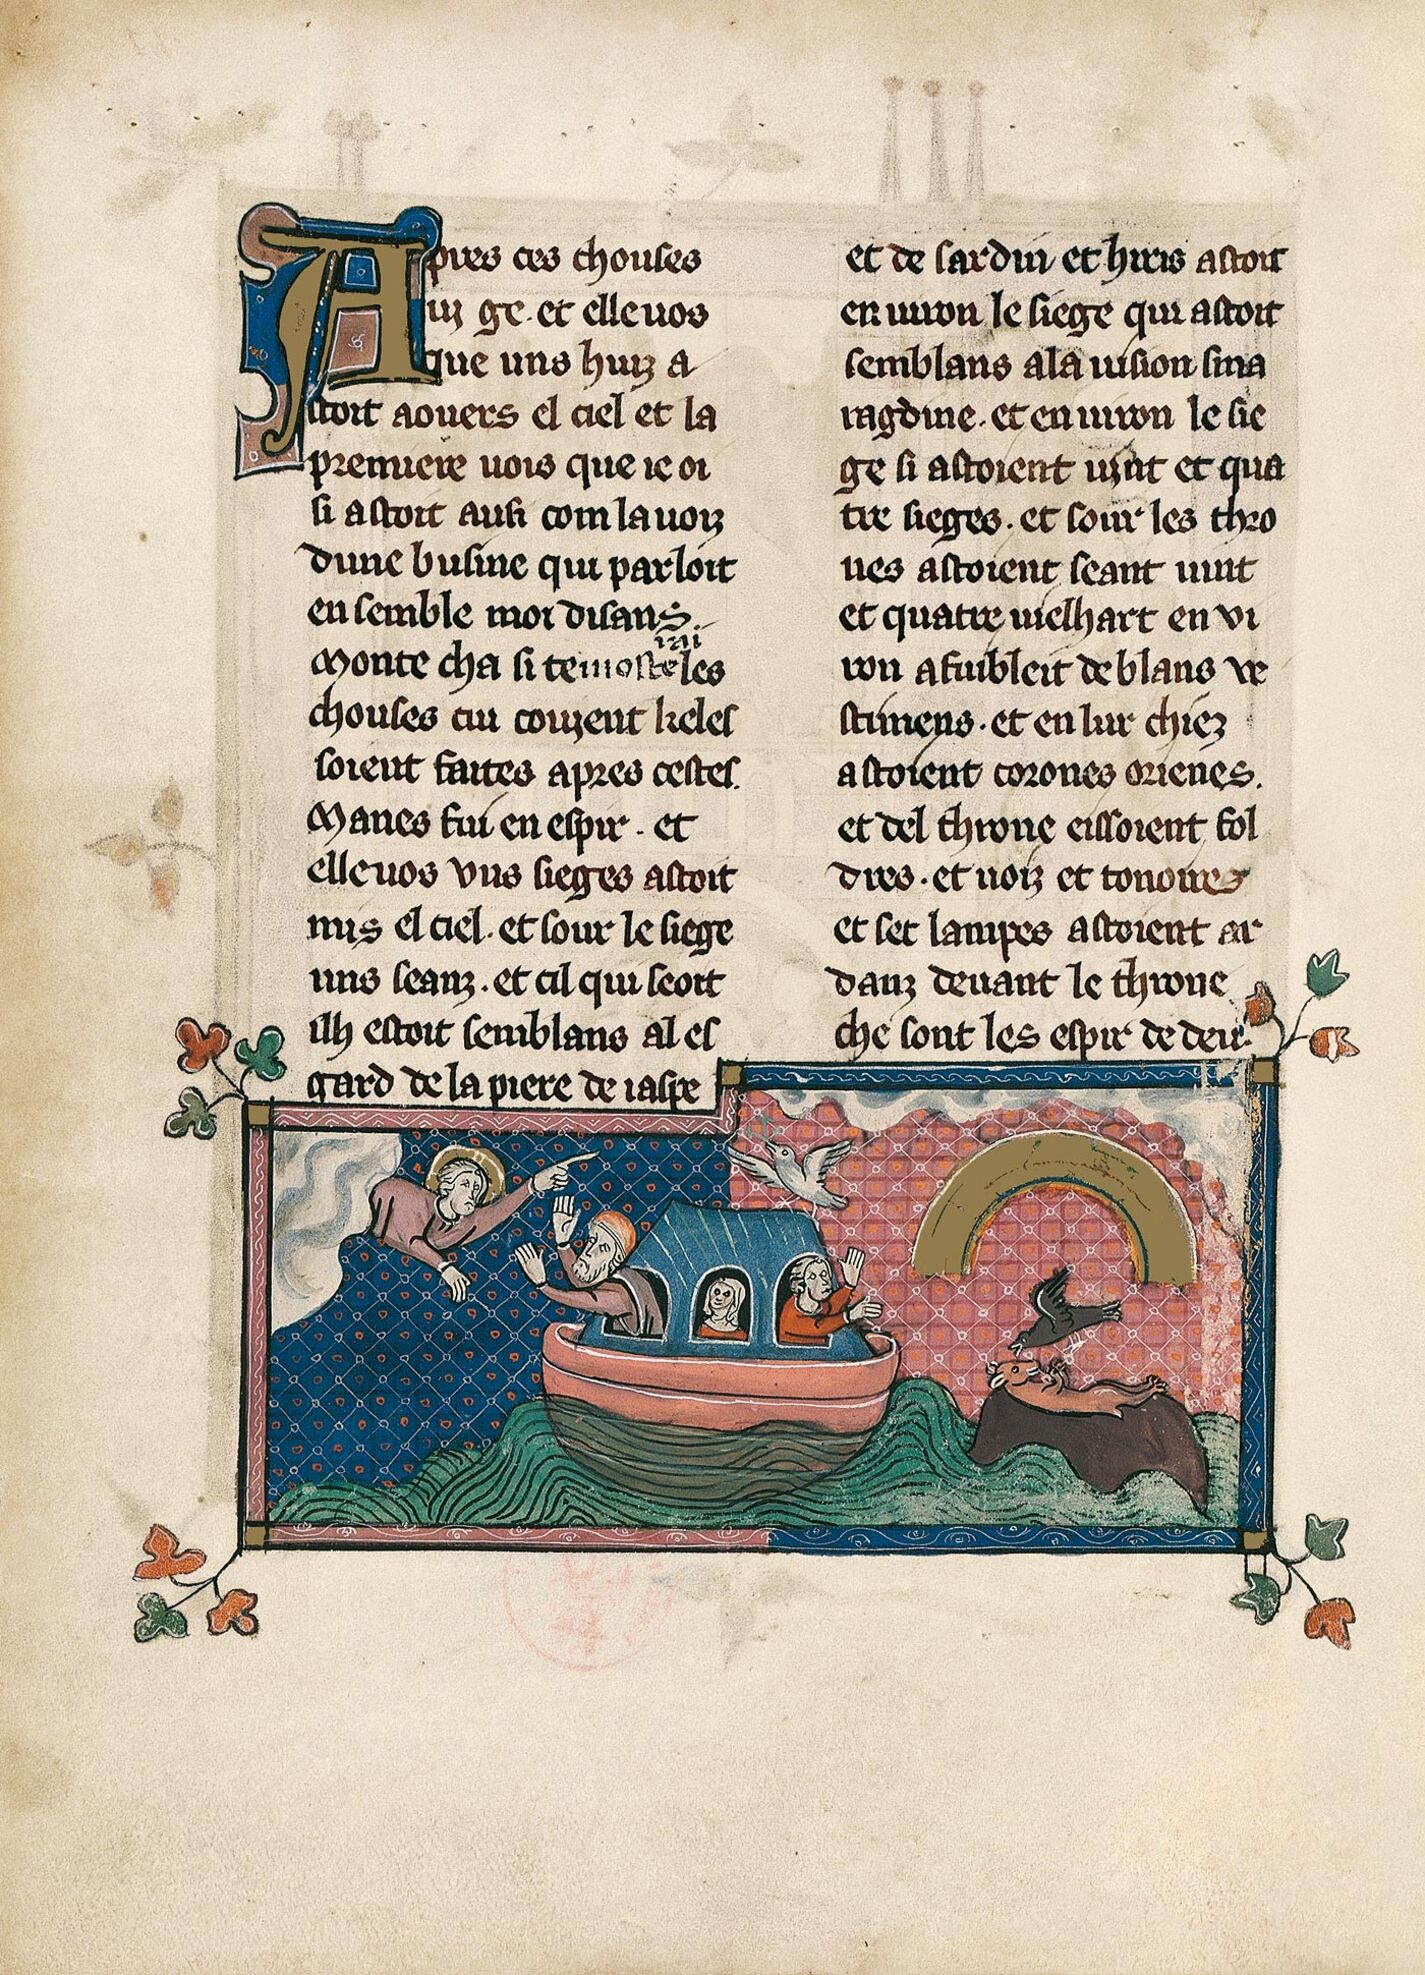 Apres ces chouses
uiz ge. et elleuos
que uns huiz a
stoit aouers el ciel et la
premiere uois que ie oi
si astoit ausi com la uoiz
dune busine qui parloit
ensemble moi disans.
Monte cha si te mosterrai les
chouses cui couient keles
soient faites apres cestes.
Manes fui en espir. et
elleuos vns sieges astoit
mis el ciel. et sour le siege
uns seanz. et cil qui seoit
ilh estoit semblans al es
gard de la piere de iaspe
et de sardin et hiris astoit
en uiron le siege qui astoit
semblans a la uision sma
ragdine. et en uiron le sie
ge si astoient uint et qua
tre sieges. et sour les thro
nes astoient seant uint
et quatre uielhart en vi
ron afuibleit de blans ve
stimens. et en lur chiez
astoient corones orienes.
et del throne eissoient fol
dres. et uoiz et tonoires
et set lampes astoient ar
danz deuant le throne
che sont les espir de deu.